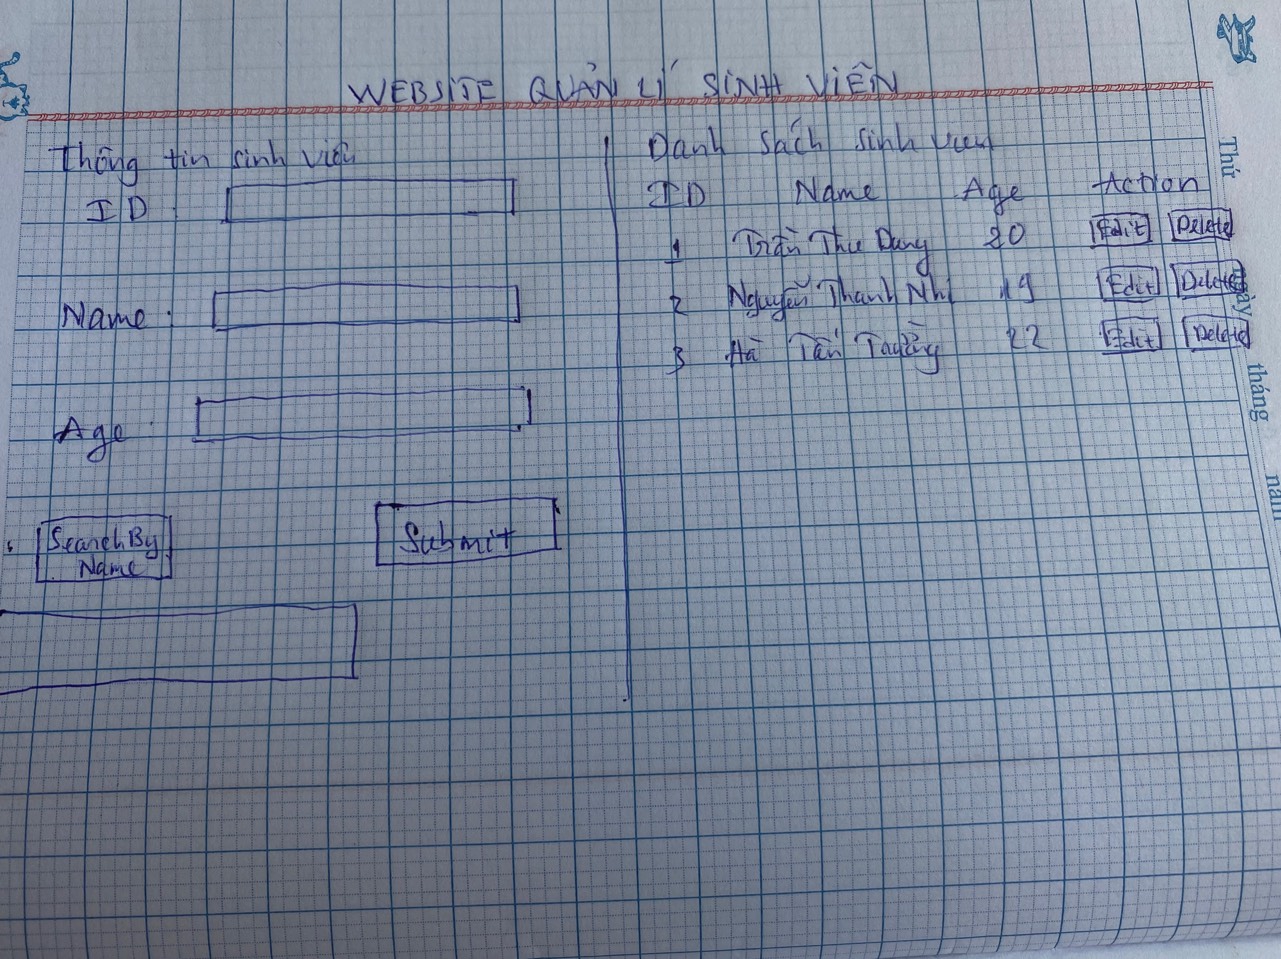 WEBSITE QUẢN LÍ SINH VIÊN
Thông tin sinh viên
ID :
Name :
Age :
Search By
Name
Submit
Danh sách sinh viên
ID Name Age Action
1 Trần Thu Dung 20 Edit Delete
2 Nguyễn Thanh Nhi 19 Edit Delete
3 Hà Tấn Trường 22 Edit Delete
Thứ
ngày
tháng
năm